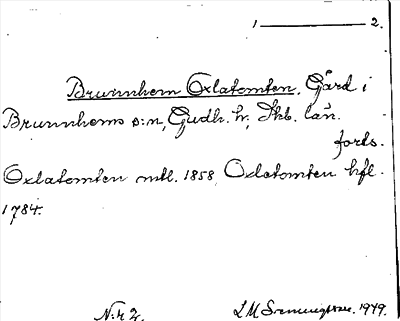 1 ——— 2.
Brunnhem Oxlatomten. Gård i
Brunnhems s:n, Gudh. hd, Skb. län.
forts.
Oxlatomten mtl. 1858, Oxlatomten hfl.
1784.
N:r 2. L M 1949.